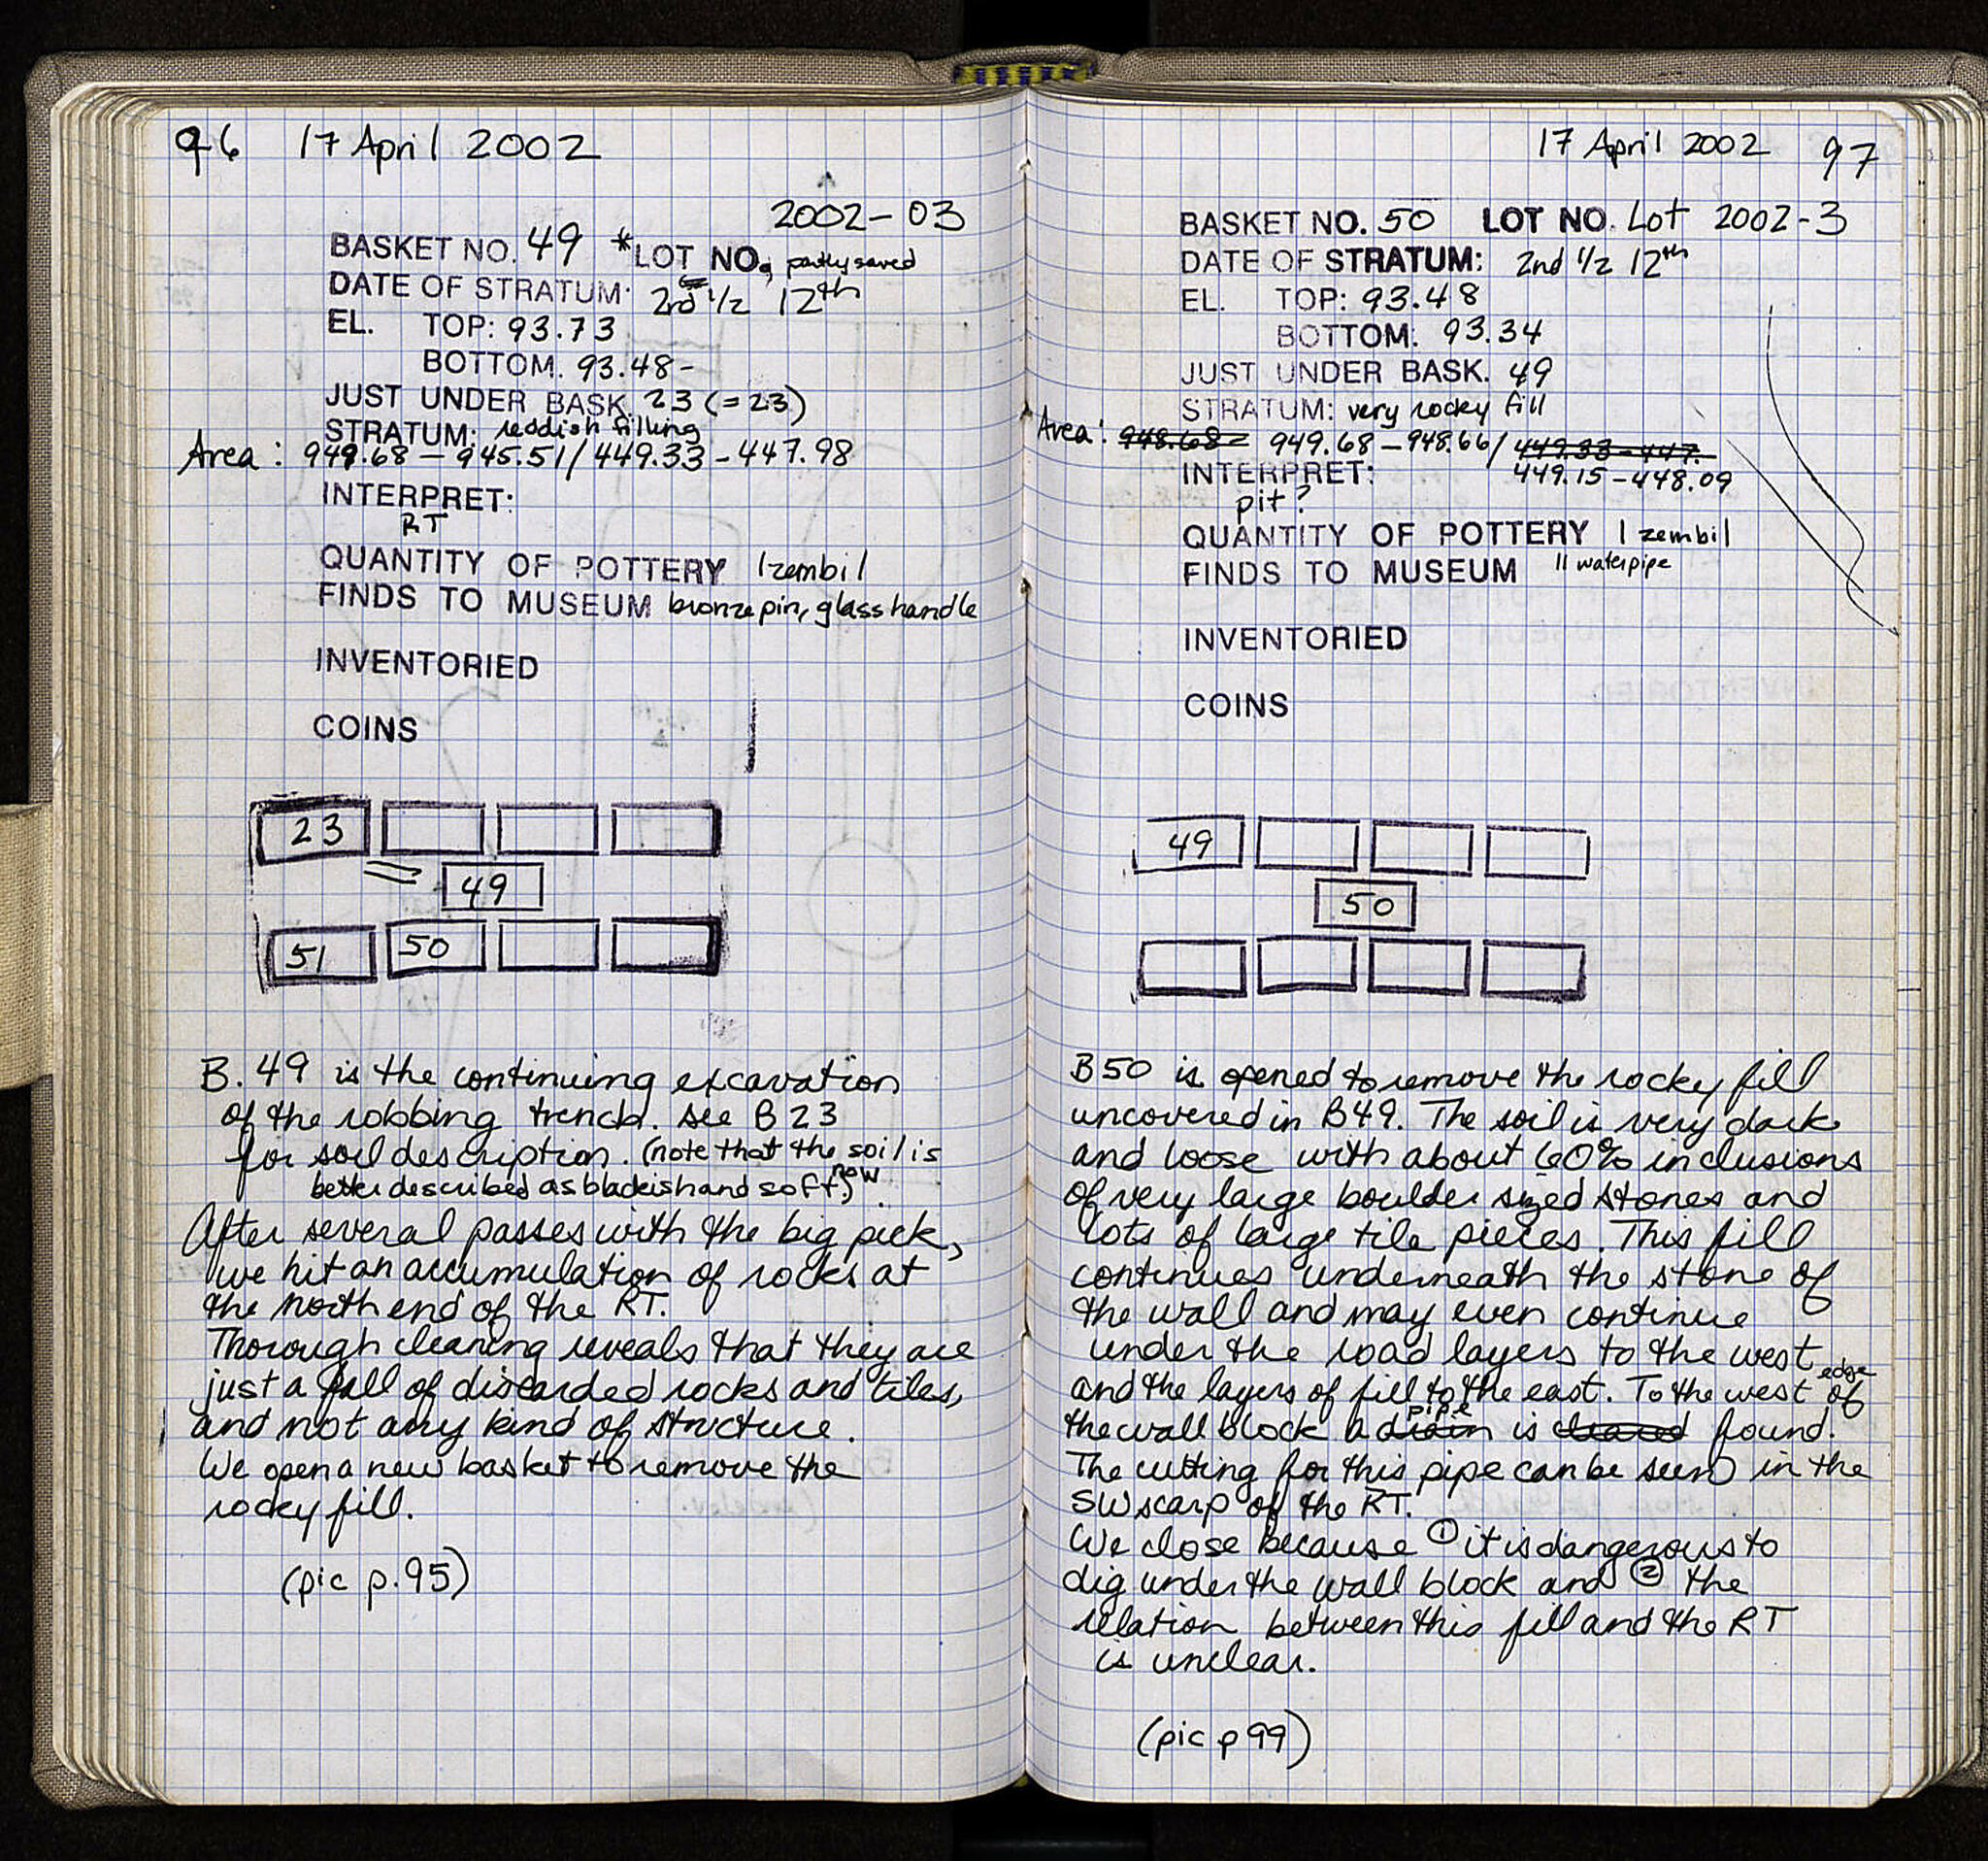 96 17 April 2002
2002-03
BASKET NO. 49 *LOT NO. partly saved
DATE OF STRATUM: 2nd 1/2 12th
EL. TOP: 93.73
BOTTOM. 93.48-
JUST UNDER BASK. 23 (=23)
STRATUM: reddish filling
Area: 949.68 - 945.51/449.33-447.98
INTERPRET:
RT
QUANTITY OF POTTERY 1 zembil
FINDS TO MUSEUM bronze pin, glass handle
INVENTORIED
COINS
23
= 49
51 50
B. 49 is the continuing excavation
of the robbing trench. see B 23
for soil description. (note that the soil is
now
better described as blackish and soft)
After several passes with the big pick,
we hit an accumulation of rocks at
the north end of the RT.
Thorough cleaning reveals that they are
just a fall of discarded rocks and tiles,
and not any kind of structure.
We open a new basket to remove the
rocky fill.
(pic p.95)
17 April 2002 97
BASKET NO. 50 LOT NO. Lot 2002-3
DATE OF STRATUM: 2nd 1/2 12th
EL. TOP: 93.48
BOTTOM: 93.34
JUST UNDER BASK. 49
STRATUM: very rocky fill
Area: 948.68- 949.68-948.66/449.33-447.
INTERPRET: 449.15-448.09
pit?
QUANTITY OF POTTERY 1 zembil
FINDS TO MUSEUM 11 waterpipe
INVENTORIED
COINS
49
50
B50 is opened to remove the rocky fill
uncovered in B49. The soil is very dark
and loose with about 60% inclusions
of very large boulder sized stones and
lots of large tile pieces. This fill
continues underneath the stone of
the wall and may even continue
under the road layers to the west
edge
and the layers of fill to the east. To the west of
pipe
the wall block a drain is found.
The cutting for this pipe can be seen in the
SW scarp of the RT.
We close because ① it is dangerous to
dig under the wall block and ② the
relation between this fill and the RT
is unclear.
(pic p 99)